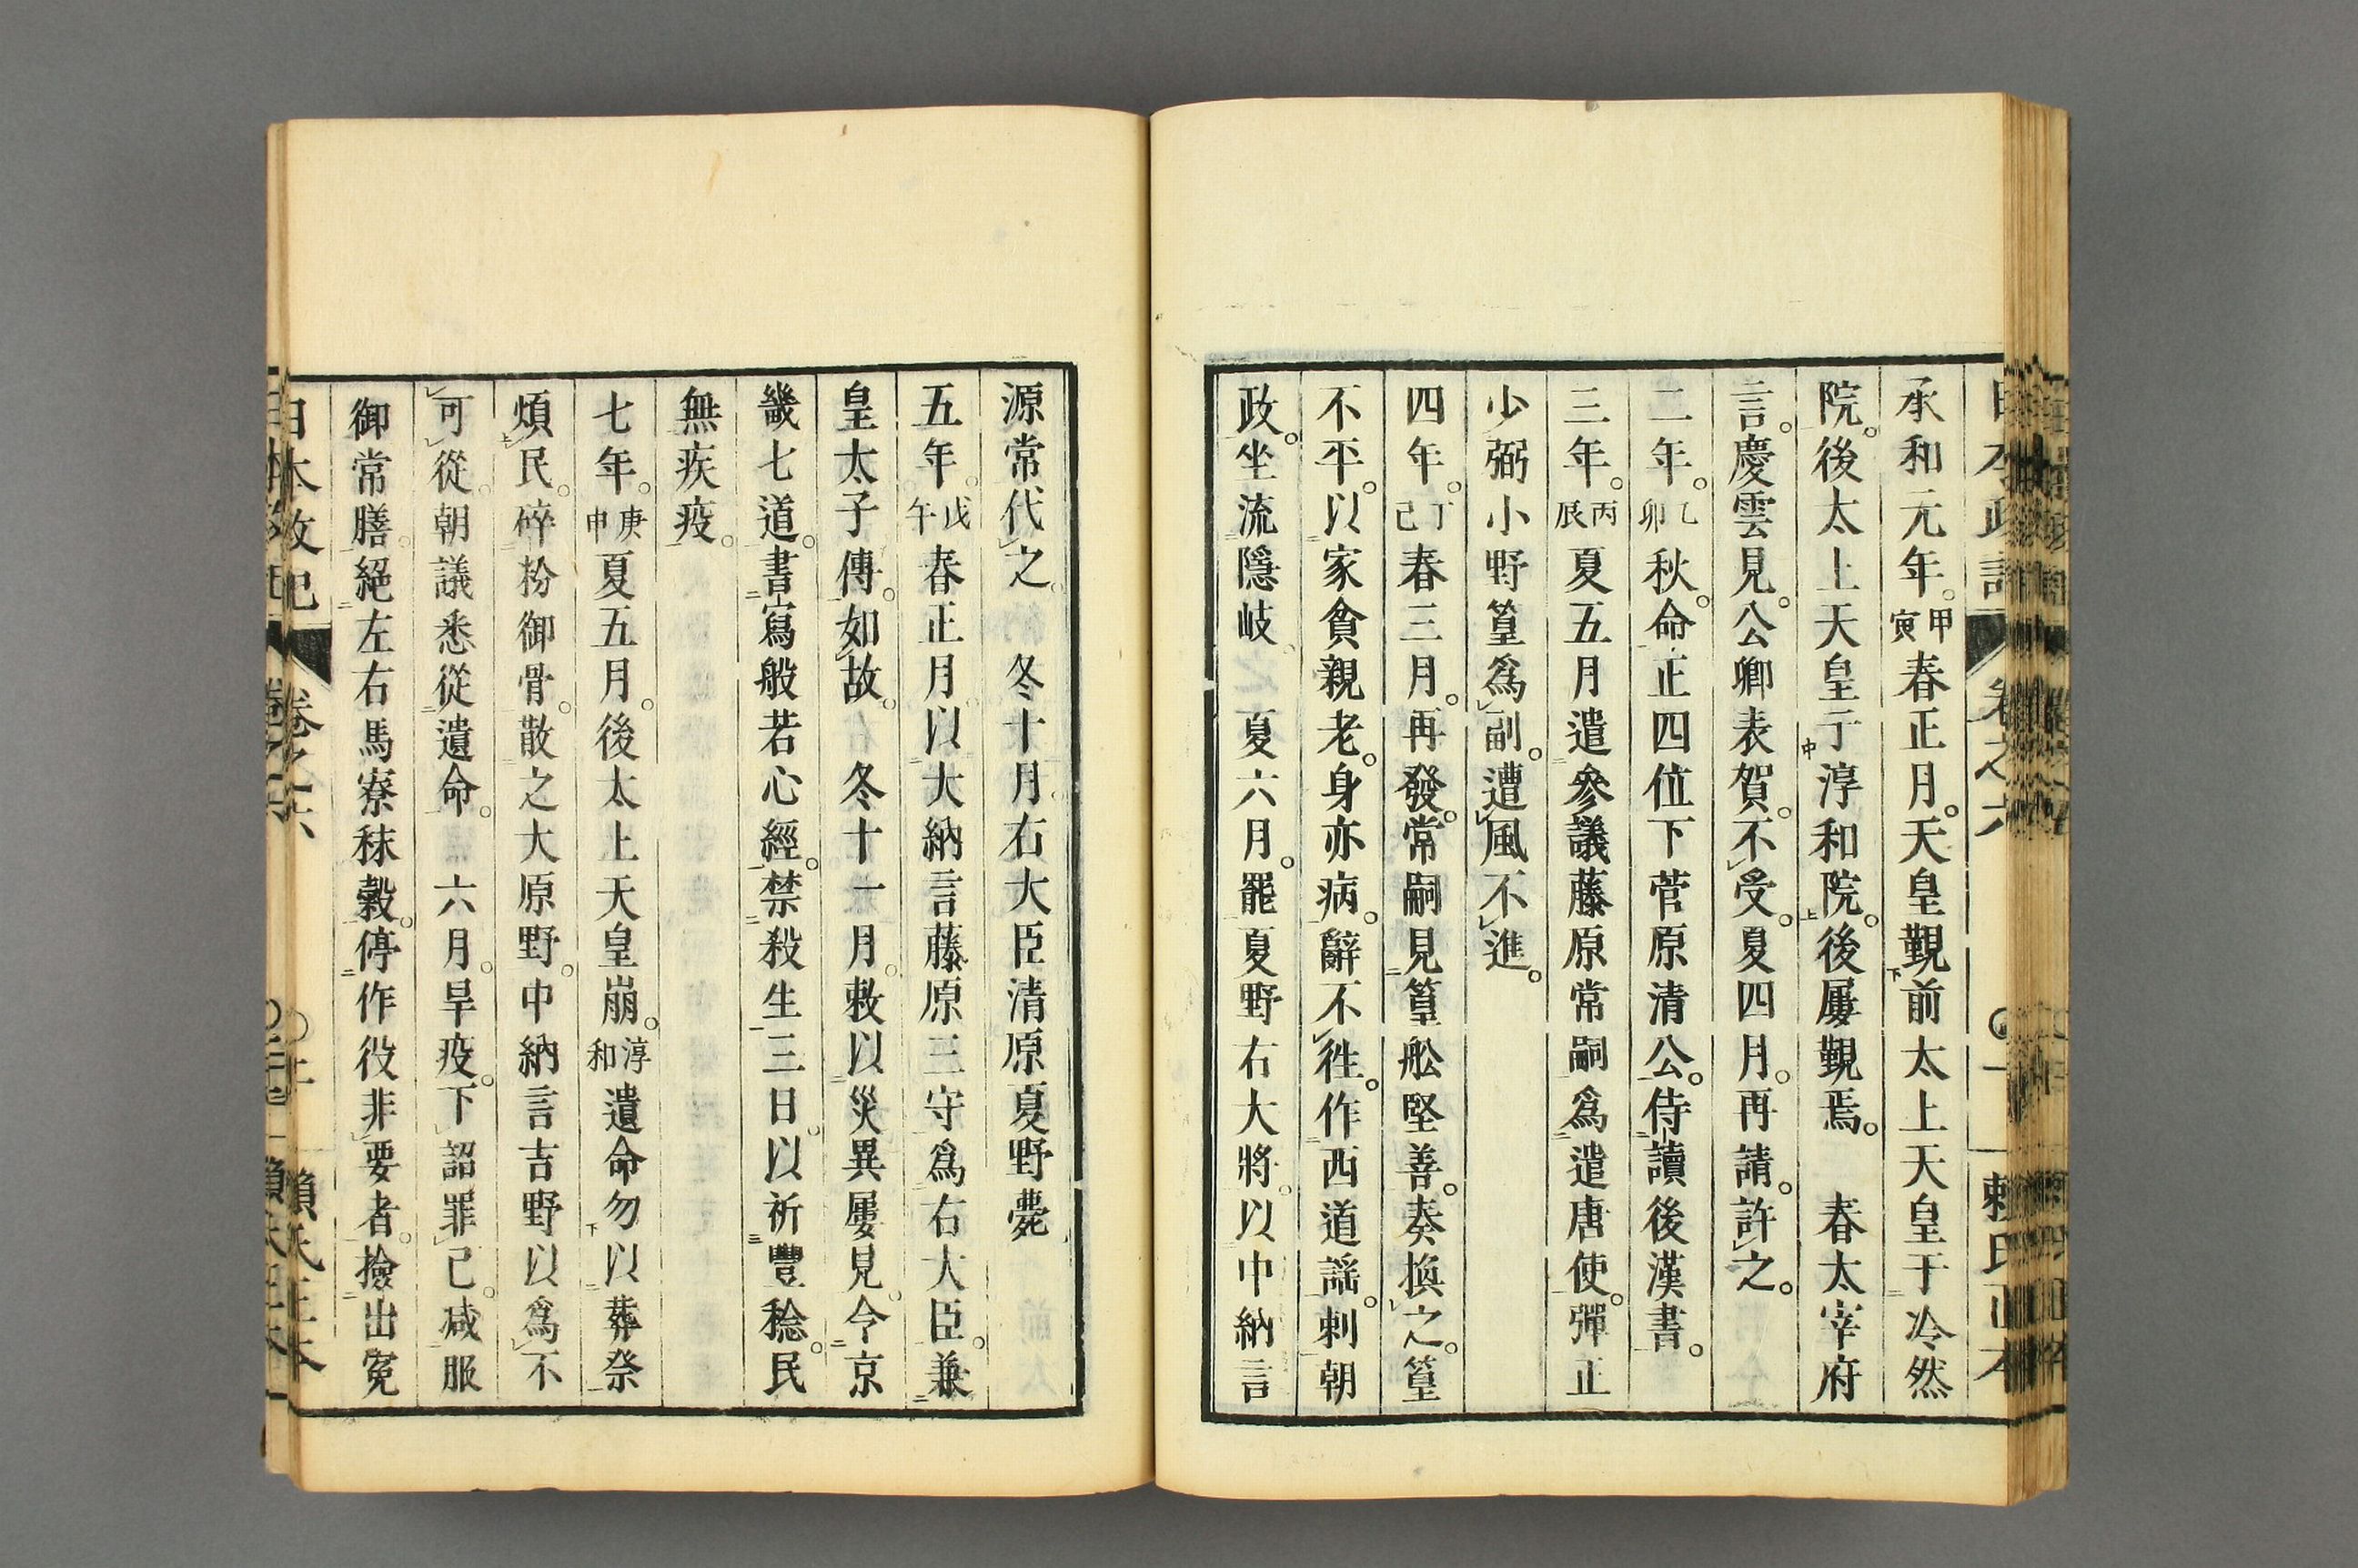 承和元年。甲寅春正月。天皇覲前太上天皇于冷然
院。後太上天皇于淳和院。後屢覲焉。　春太宰府
言。慶雲見。公卿表賀。不受。夏四月。再請。許之。
二年。乙卯秋。命正四位下菅原清公。侍讀後漢書。
三年。丙辰夏五月遣參議藤原常嗣爲遣唐使。彈正
少弼小野篁爲副。遭風不進。
四年。丁巳春三月。再發。常嗣見篁舩堅善。奏換之。篁
不平。以家貧親老。身亦病。辭不徃。作西道謡。刺朝
政。坐流隱岐。　夏六月。罷夏野右大將。以中納言
源常代之。　冬十月。右大臣清原夏野薨
五年。戊午春正月。以大納言藤原三守爲右大臣。兼
皇太子傳。如故。　冬十一月。敕以災異屢見。令京
畿七道。書寫般若心經。禁殺生三日。以祈豐稔。民
無疾疫。
七年。庚申夏五月。後太上天皇崩。淳和遺命勿以葬祭
煩民。碎粉御骨。散之大原野。中納言吉野以爲不
可從。朝議悉從遺命。　六月。旱疫。下詔罪己。減服
御常膳。絕左右馬寮秣穀。停作役非要者。撿出冤
日本政記　卷之六